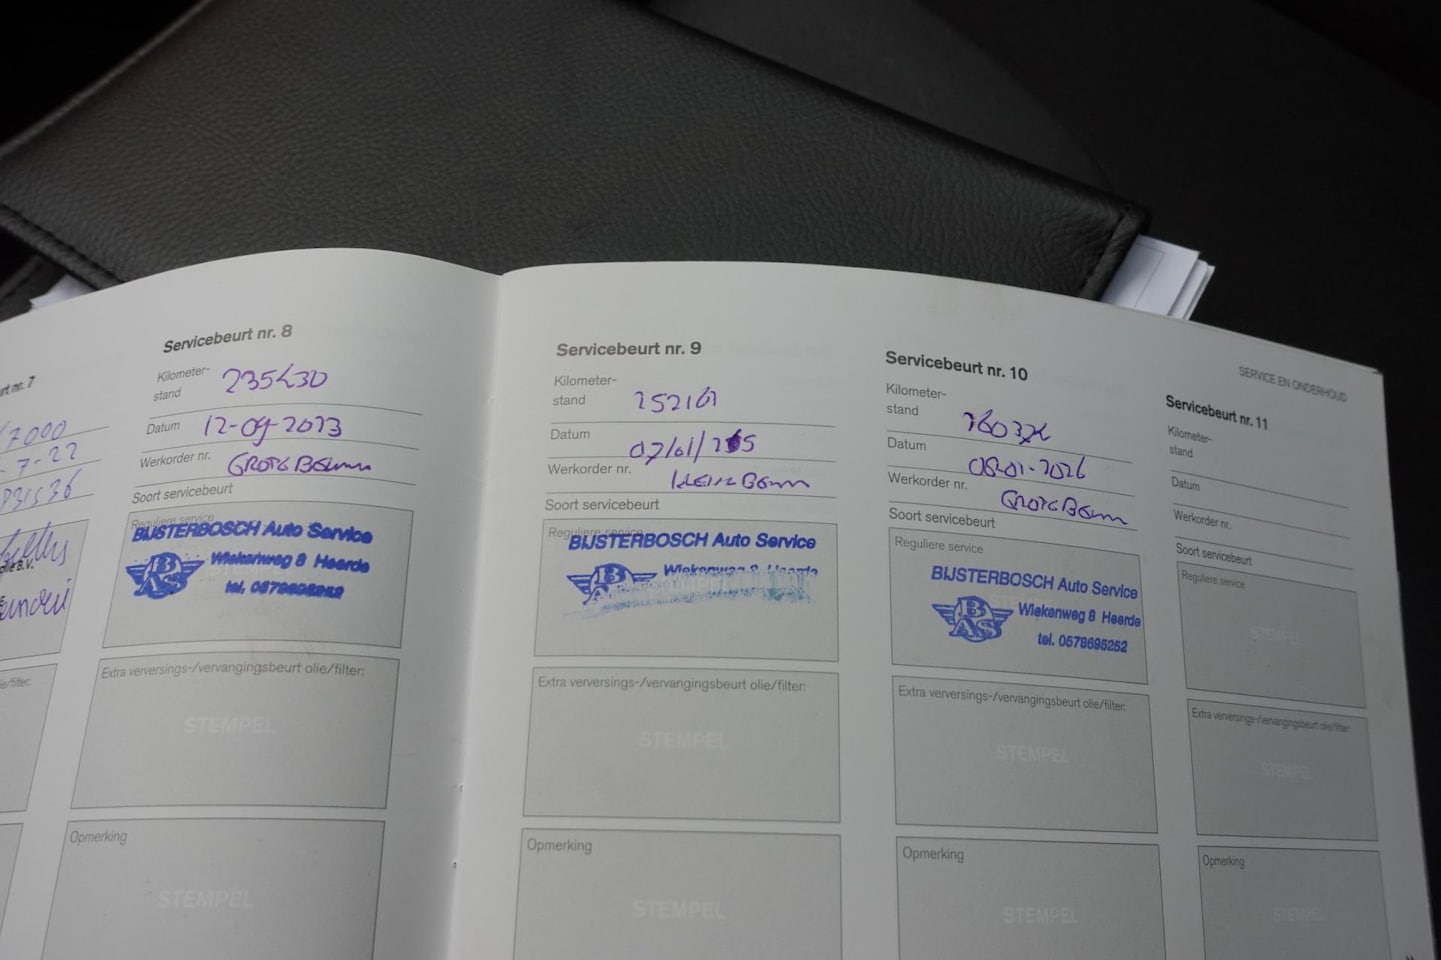 7000
7-22
Servicebeurt nr. 8
Kilometer-
stand 235430
Datum 12-09-2023
Werkorder nr. GROTE BEURT
Soort servicebeurt
Reguliere service
BIJSTERBOSCH Auto Service
BAS
Wiekenweg 8 Heerde
tel. 0578695252
Extra verversings-/vervangingsbeurt olie/filter:
STEMPEL
Opmerking
STEMPEL
Servicebeurt nr. 9
Kilometer-
stand 252161
Datum
Werkorder nr. KLEINE BEURT
Soort servicebeurt
Reguliere service
BIJSTERBOSCH Auto Service
BAS
Wiekenweg 8 Heerde
Extra verversings-/vervangingsbeurt olie/filter:
STEMPEL
Opmerking
STEMPEL
Servicebeurt nr. 10
Kilometer-
stand
Datum 08-01-2026
Werkorder nr. GROTE BEURT
Soort servicebeurt
Reguliere service
BIJSTERBOSCH Auto Service
BAS
Wiekenweg 8 Heerde
tel. 0578695252
Extra verversings-/vervangingsbeurt olie/filter:
STEMPEL
Opmerking
STEMPEL
SERVICE EN ONDERHOUD
Servicebeurt nr. 11
Kilometer-
stand
Datum
Werkorder nr.
Soort servicebeurt
Reguliere service
STEMPEL
Extra verversings-/vervangingsbeurt olie/filter:
STEMPEL
Opmerking
STEMPEL
»